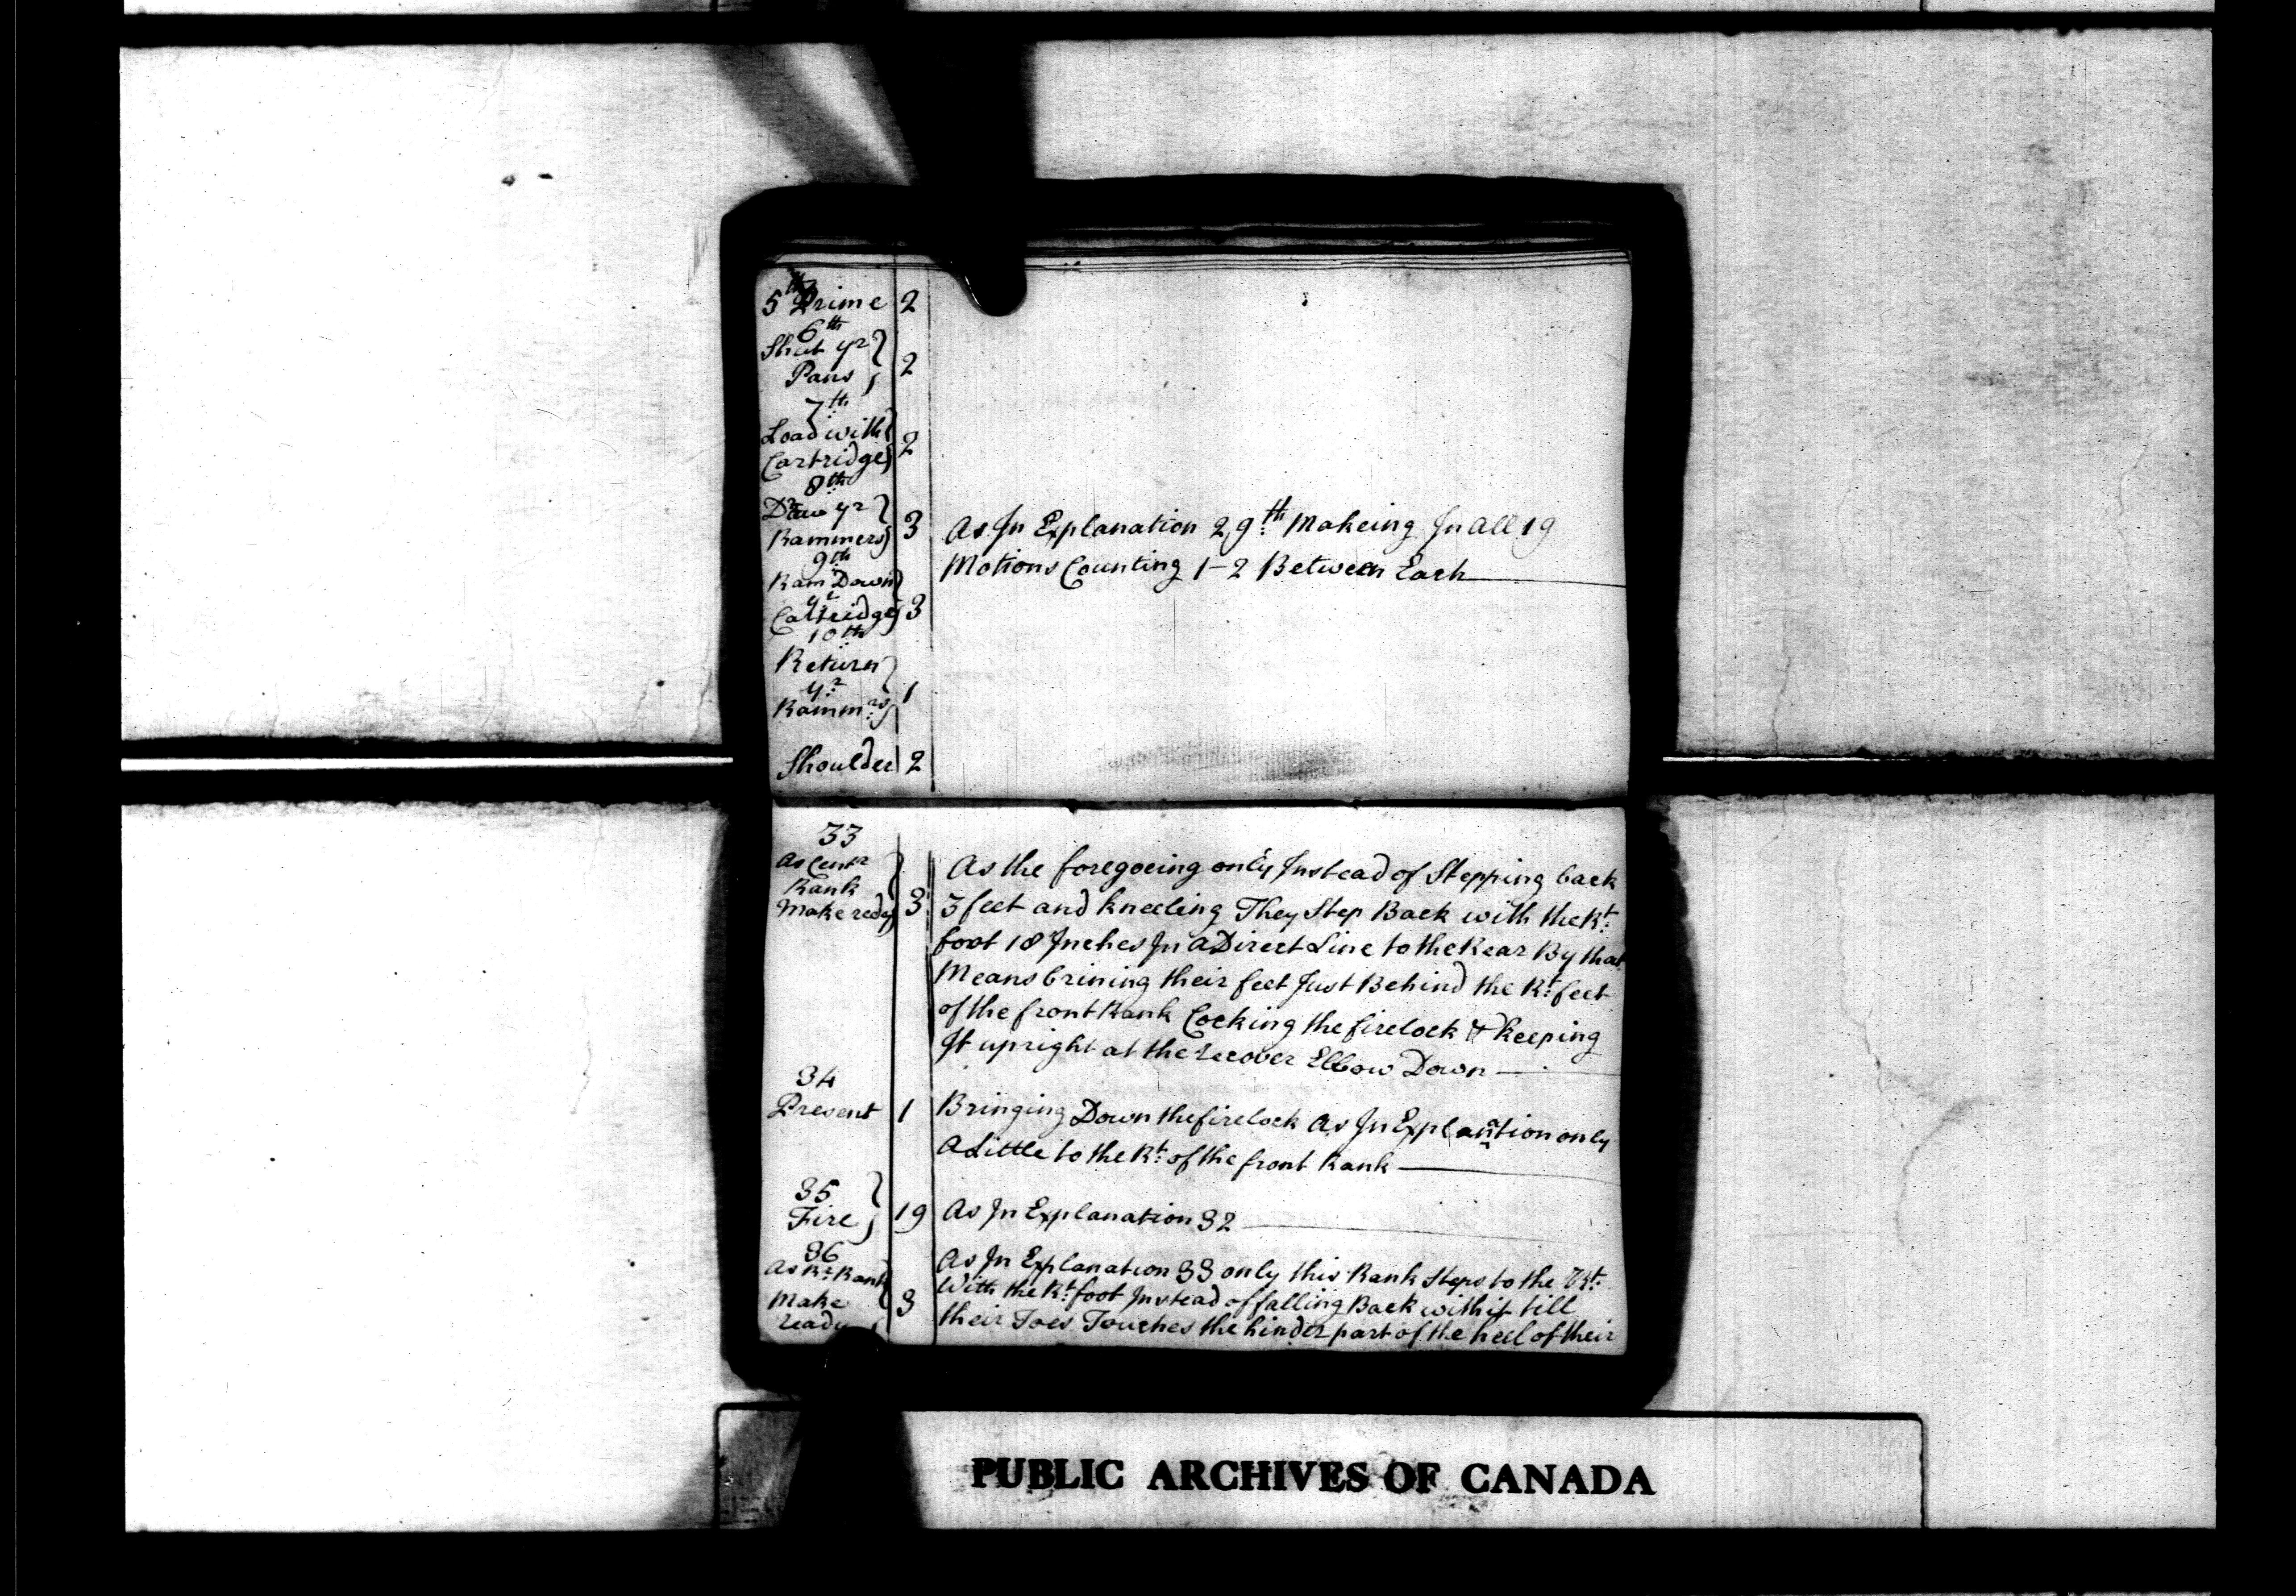 5th Prime 2
6th
Shut yr
Pans 2
7th
Load with
Cartridge 2
8th
Draw yr
Rammers 3
As In Explanation 29th Makeing In all 19
Motions Counting 1-2 Between Each
9th
Ram Down
yr
Cattridge 3
10th
Return
yr
Rammrs 1
Shoulder 2
33
As Centr
Rank
Make redy 3
As the foregoeing only Instead of Stepping back
3 feet and kneeling They Step Back with the Rt
foot 18 Inches In a Direct Line to the Rear By that
Means brining their feet Just Behind the Rt feet
of the front Rank Cocking the firelock & keeping
It upright at the Recover Elbow Down
34
Present 1
Bringing Down the firelock As In Explantion only
A Little to the Rt of the front Rank
35
Fire 19
As In Explanation 32
36
As Rr Rank
Make
ready 3
As In Explanation 33 only this Rank Steps to the Rt
With the Rt foot Instead of falling Back with it till
their Toes Touches the hinder part of the heel of their
PUBLIC ARCHIVES OF CANADA